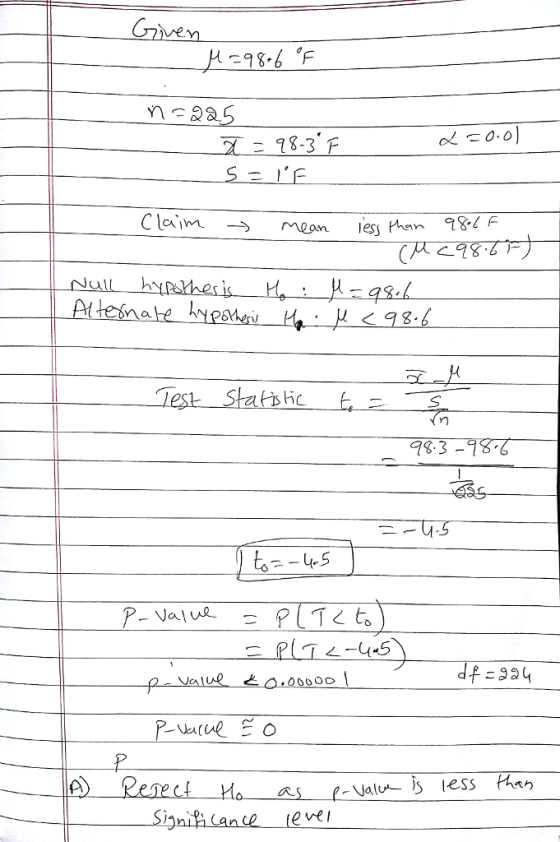 Given
μ = 98.6 °F
n = 225
x̄ = 98.3° F α = 0.01
S = 1°F
Claim → mean less than 98.6 F
(μ < 98.6 F)
Null hypothesis H₀ : μ = 98.6
Alternate hypothesis Hₐ : μ < 98.6
Test Statistic t₀ = (x̄ - μ) / (S / √n)
= (98.3 - 98.6) / (1 / √225)
= -4.5
t₀ = -4.5
P-value = P(T < t₀)
= P(T < -4.5)
p-value < 0.000001 df = 224
P-value ≅ 0
P
A) Reject H₀ as p-value is less than
significance level